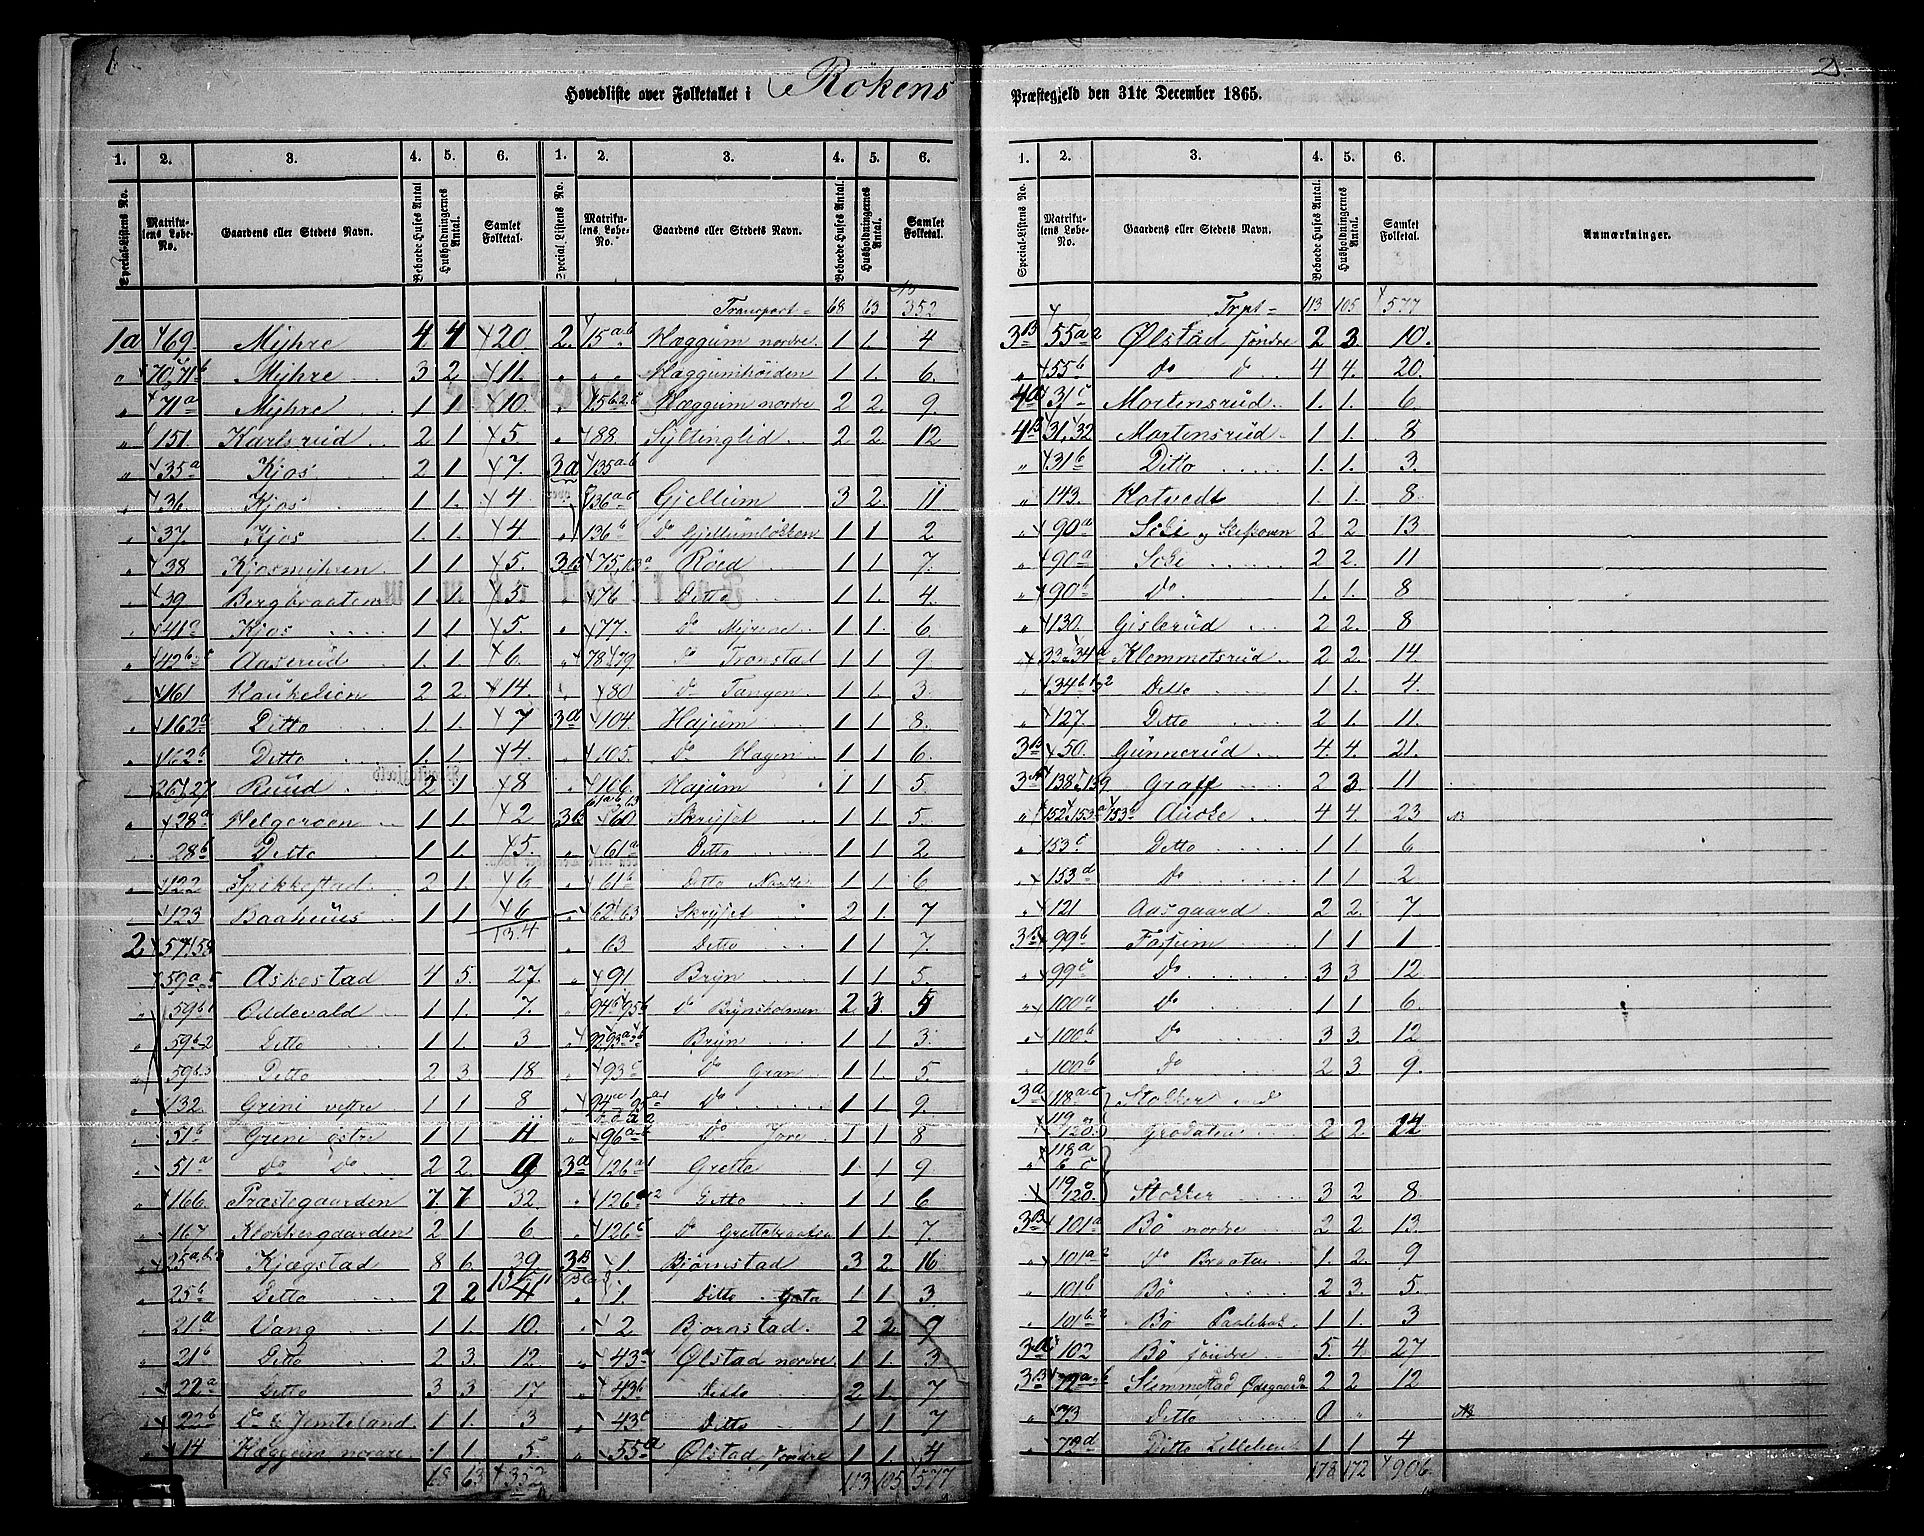 1
2.
Hovedliste over Folketallet i Rökens Præstegjeld den 31te December 1865.
1. 2. 3. 4. 5. 6. 1. 2. 3. 4. 5. 6.
Special-Listens No. Matrikulens Løbe-No. Gaardens eller Stedets Navn. Beboede Huses Antal Husholdningernes Antal. Samlet Folketal. Special-Listens No. Matrikulens Løbe-No. Gaardens eller Stedets Navn. Beboede Huses Antal. Husholdningernes Antal. Samlet Folketal.
Transport 68 63 352
1a 69 Mijhre 4 4 20 2. 15a-b Hæggum nordre 1 1 4
" 70, 71b Mijhre 3 2 11. " " Hæggumhöiden 1 1. 6.
" 71a Mijhre 1 1 10. Hæggum nordre 2 2. 9.
" 151. Karlsrud 2 1 5. " 88. Syltinglid 2 2. 12
" 35a Kjos 2 1 7. 3a 135a-b
" 36. Kjos 1 1 4 136a Gjellum 3 2. 11
" 37. Kjos 1. 1. 4. 136b Do Gjellumlökken 1 1 2
" 38 Kjosmijhren 1 1 5. 3B 75, Röed 1 1. 7.
" 39 Bergbraaten 1 1. 5 " 76 Ditto 1 1. 4.
" 41a Kjos 1 1 5. " 77. Do 1 1. 6
" 42b Aaserud 1. 1. 6. " 78 79 Do Tronstad 1 1. 9.
" 161 Haukelien 2 2. 14. " 80 Do Tangen 1 1. 3.
" 162a Ditto 1. 1. 7 3a 104. Hajum 1 1 8.
162b Ditto 1. 1. 4. " 105. Do Hagen 1 1. 6.
26 27 Ruud 2 1 8 " 106. Hajum 1 1. 5
" 28a Helgeroen 1 1. 2 3B 60 Skrijset 1 1. 5.
28b Ditto 1 1. 5. " 61a Ditto 1 1. 2.
122 Spikkestad 2 1. 6 " 61b Ditto 1 1. 6
123 Baahuus 1 1 6 62 63 Skrijset 2 1. 7
134
2 57, 58 " 63 Ditto 1 1 7.
59a Askestad 4 5. 27. " 91. Brijn 1 1. 5.
59b1 Oddevald 1 1. 7. Do Brijnsholmen 2 3. 5
59b-2 Ditto 1 1. 3 Brijn 1 1. 3.
59b-3 Ditto 2 3. 18 " 93c Do Gran 1 1. 5.
" 132. Grini vestre 1 1 8 Do 1 1. 9.
" 51b Grini östre 1 1. 11 96a Do 1 1 8
" 51a Do Do 2 2. 9 3a 126a1 Grette 1. 1. 9
" 166. Præstegaarden 7. 7 32. " 126a2 Ditto 1 1. 6
" 167 Klokkergaarden 2 1 6 " 126c Do Grettebraaten 1 1. 7.
25a Kjægstad 8 6. 39. 3B 1. Bjørnstad 3 2. 16
" 25b Ditto 2 2 4 1. Ditto 1 1. 3.
" 21a Vang 1 1. 10. " 2. Bjornstad 2 2. 9
" 21b Ditto 2 3. 12 " 43a Ølstad nordre 1 1. 3
" 22a Ditto 3 3. 17 " 43b Ditto 2 1. 7
" 22b Do Jemteland 1 1. 3 " 43c Ditto 1 1. 7
" 14 Hæggum nordre 1 1. 5. 55a Ølstad söndre 1 1. 4
68 63 352 113 105 577
1. 2. 3. 4. 5. 6.
Special-Listens No. Matrikulens Løbe-No. Gaardens eller Stedets Navn. Beboede Huses Antal. Husholdningernes Antal. Samlet Folketal. Anmærkninger.
Trpt 113 105 577
3B 55a2 Ølstad söndre 2 3 10.
" 55b Do D 4 4. 20.
4a 31c Mortensrud 1. 1. 6
4B 31, 32 Mortensrud 1 1. 8
" 31b Ditto 1. 1. 3.
" 143. Hotvedt 1. 1. 8
" 90a 2 2. 13
" 90a 2 2. 11
" 90b Do. 1. 1. 8
" 130. Gislerud 2 2. 8
33 34a Klemmetsrud 2 2. 14.
34b Ditto 1 1. 4.
127. Ditto 2 1. 11.
3B 50. Gunnerud 4 4. 21.
3a 138, 139. Graff 2 3. 11
152, 153a 153b Auke 4 4 23
153c Ditto 1 1. 6
153d Do 1 1. 2
121 Aasgaard 2 2. 7
3B 99b Fossum 1 1 1
" 99c Do 3 3. 12
" 100a Do 1 1. 6
" 100b Do 3 3. 12
" 100b Do 2 3. 9.
3a 118a-c Stokker
119 120. Grodaten 2 2. 14
118a
119 120. Stokker 3 2 8
3B 101a Bö nordre 2 2. 13
" 101a2 Do Braaten 1. 2. 9
101b Bö 2 3. 5
101b2 Bö 1 1. 3
3a 102 Bö söndre 5 4. 27
3B 72a-b Slemmestad Ødegaarden 2 2. 12
" 73 Ditto 0 "
" 72d Ditto Lillelien 1 1. 4
178 172 906.